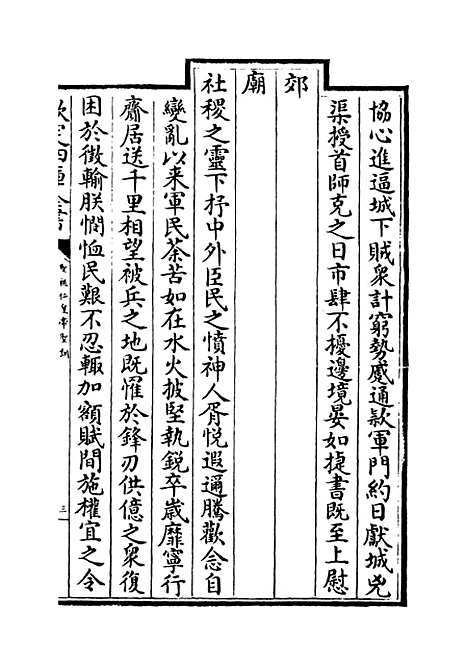 協心進逼城下賊衆計窮勢蹙通款軍門約日獻城兇
渠授首師克之日市肆不擾邊境晏如捷書既至上慰
郊
廟
社稷之靈下抒中外臣民之憤神人胥悦遐邇騰歡念自
變亂以来軍民荼苦如在水火披堅執鋭卒歳靡寧行
齎居送千里相望被兵之地既罹於鋒刃供億之衆復
困於徴輸朕憫恤民艱不忍輙加額賦間施權宜之令
欽定四庫全書
聖祖仁皇帝聖訓
三